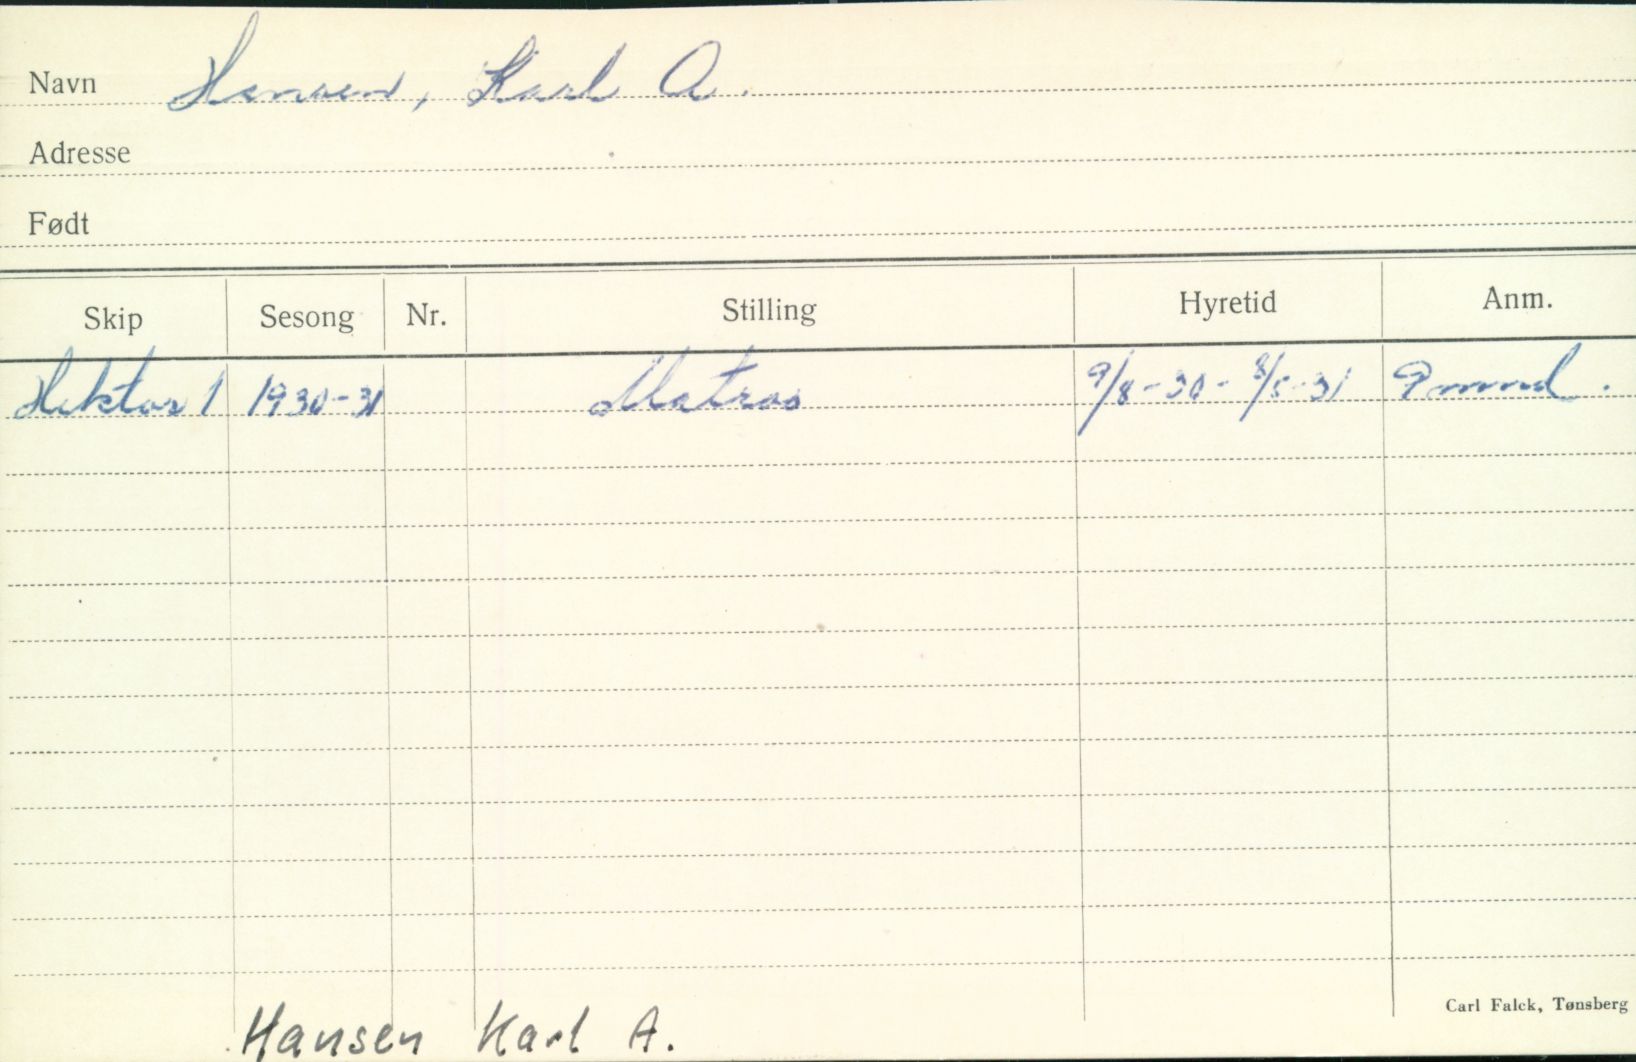 Navn Hansen, Karl A.
Adresse
Født
Skip Sesong Nr. Stilling Hyretid Anm.
Hektor 1 1930-31 Matros 9/8-30 - 8/5-31 9 mnd.
Carl Falck, Tønsberg
Hansen Karl A.